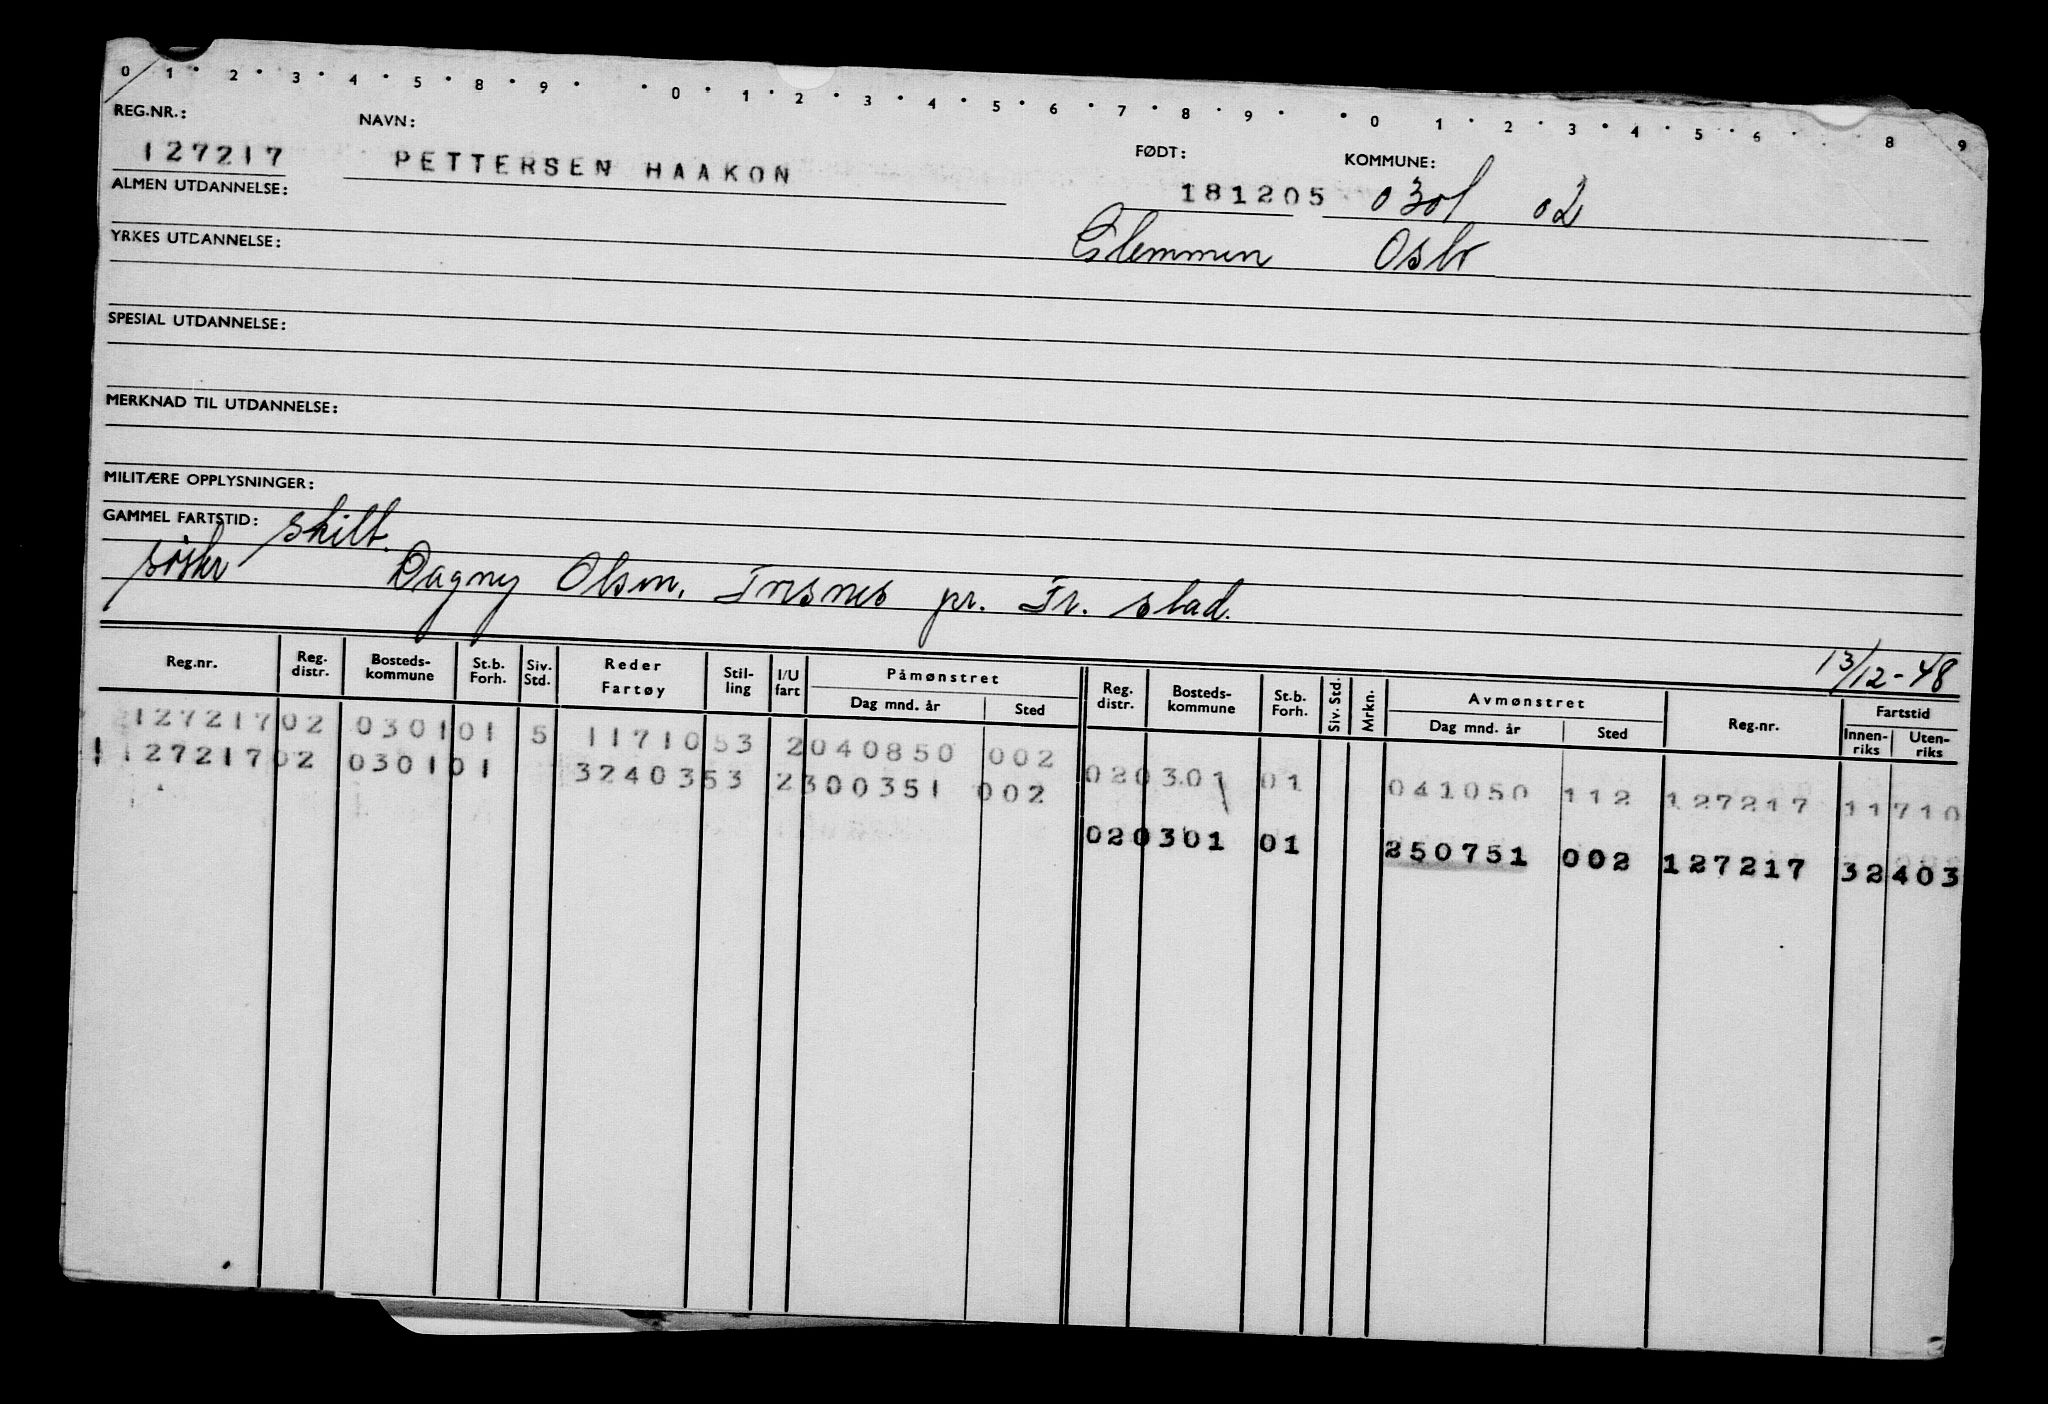 0 1 2 3 4 5 8 9 0 1 2 3 4 5 6 7 8 9 0 1 2 3 4 5 6 8 9
REG.NR.: NAVN: FØDT: KOMMUNE:
127217 PETTERSEN HAAKON 181205 0301 02
ALMEN UTDANNELSE:
YRKES UTDANNELSE: Glemmen Oslo
SPESIAL UTDANNELSE:
MERKNAD TIL UTDANNELSE:
MILITÆRE OPPLYSNINGER:
GAMMEL FARTSTID: skilt.
Dagny Olsen, pr. Fr. stad.
13/12-48
Reg.nr. Reg. distr. Bosteds-kommune St.b. Forh. Siv. Std. Reder Fartøy Stil-ling I/U fart Påmønstret Dag mnd. år Sted Reg. distr. Bosteds-kommune St.b. Forh. Siv. Std. Mrkn. Avmønstret Dag mnd. år Sted Reg.nr. Fartstid Innen-riks Uten-riks
127217 02 0301 01 5 11710 53 2 040850 002
1 127217 02 0301 01 32403 53 2 300351 002
02 0301 01 041050 112 127217 11710
02 0301 01 250751 002 127217 32403